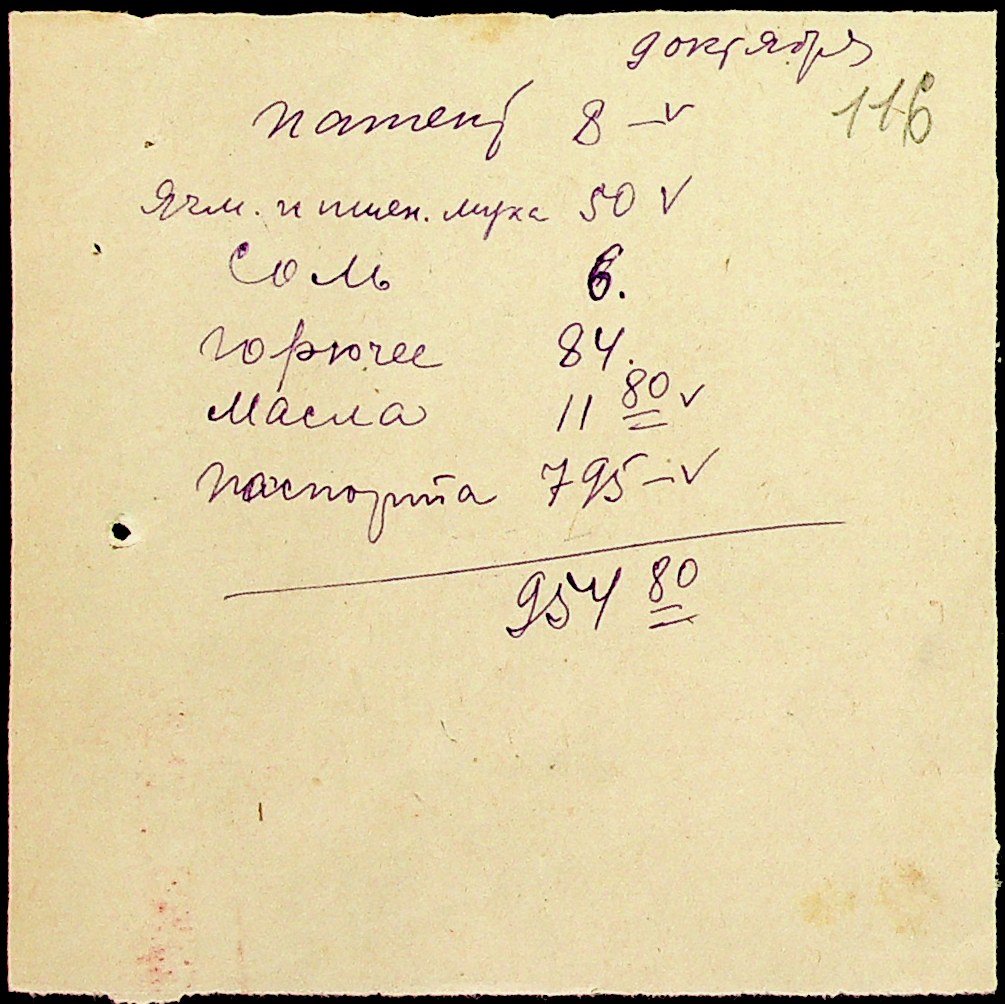 9 октября
116
патент 8 — v
Ячм. и пшен. мука 50 v
Соль 6.
горючее 84.
масла 11 80 v
паспорта 795 — v
954 80